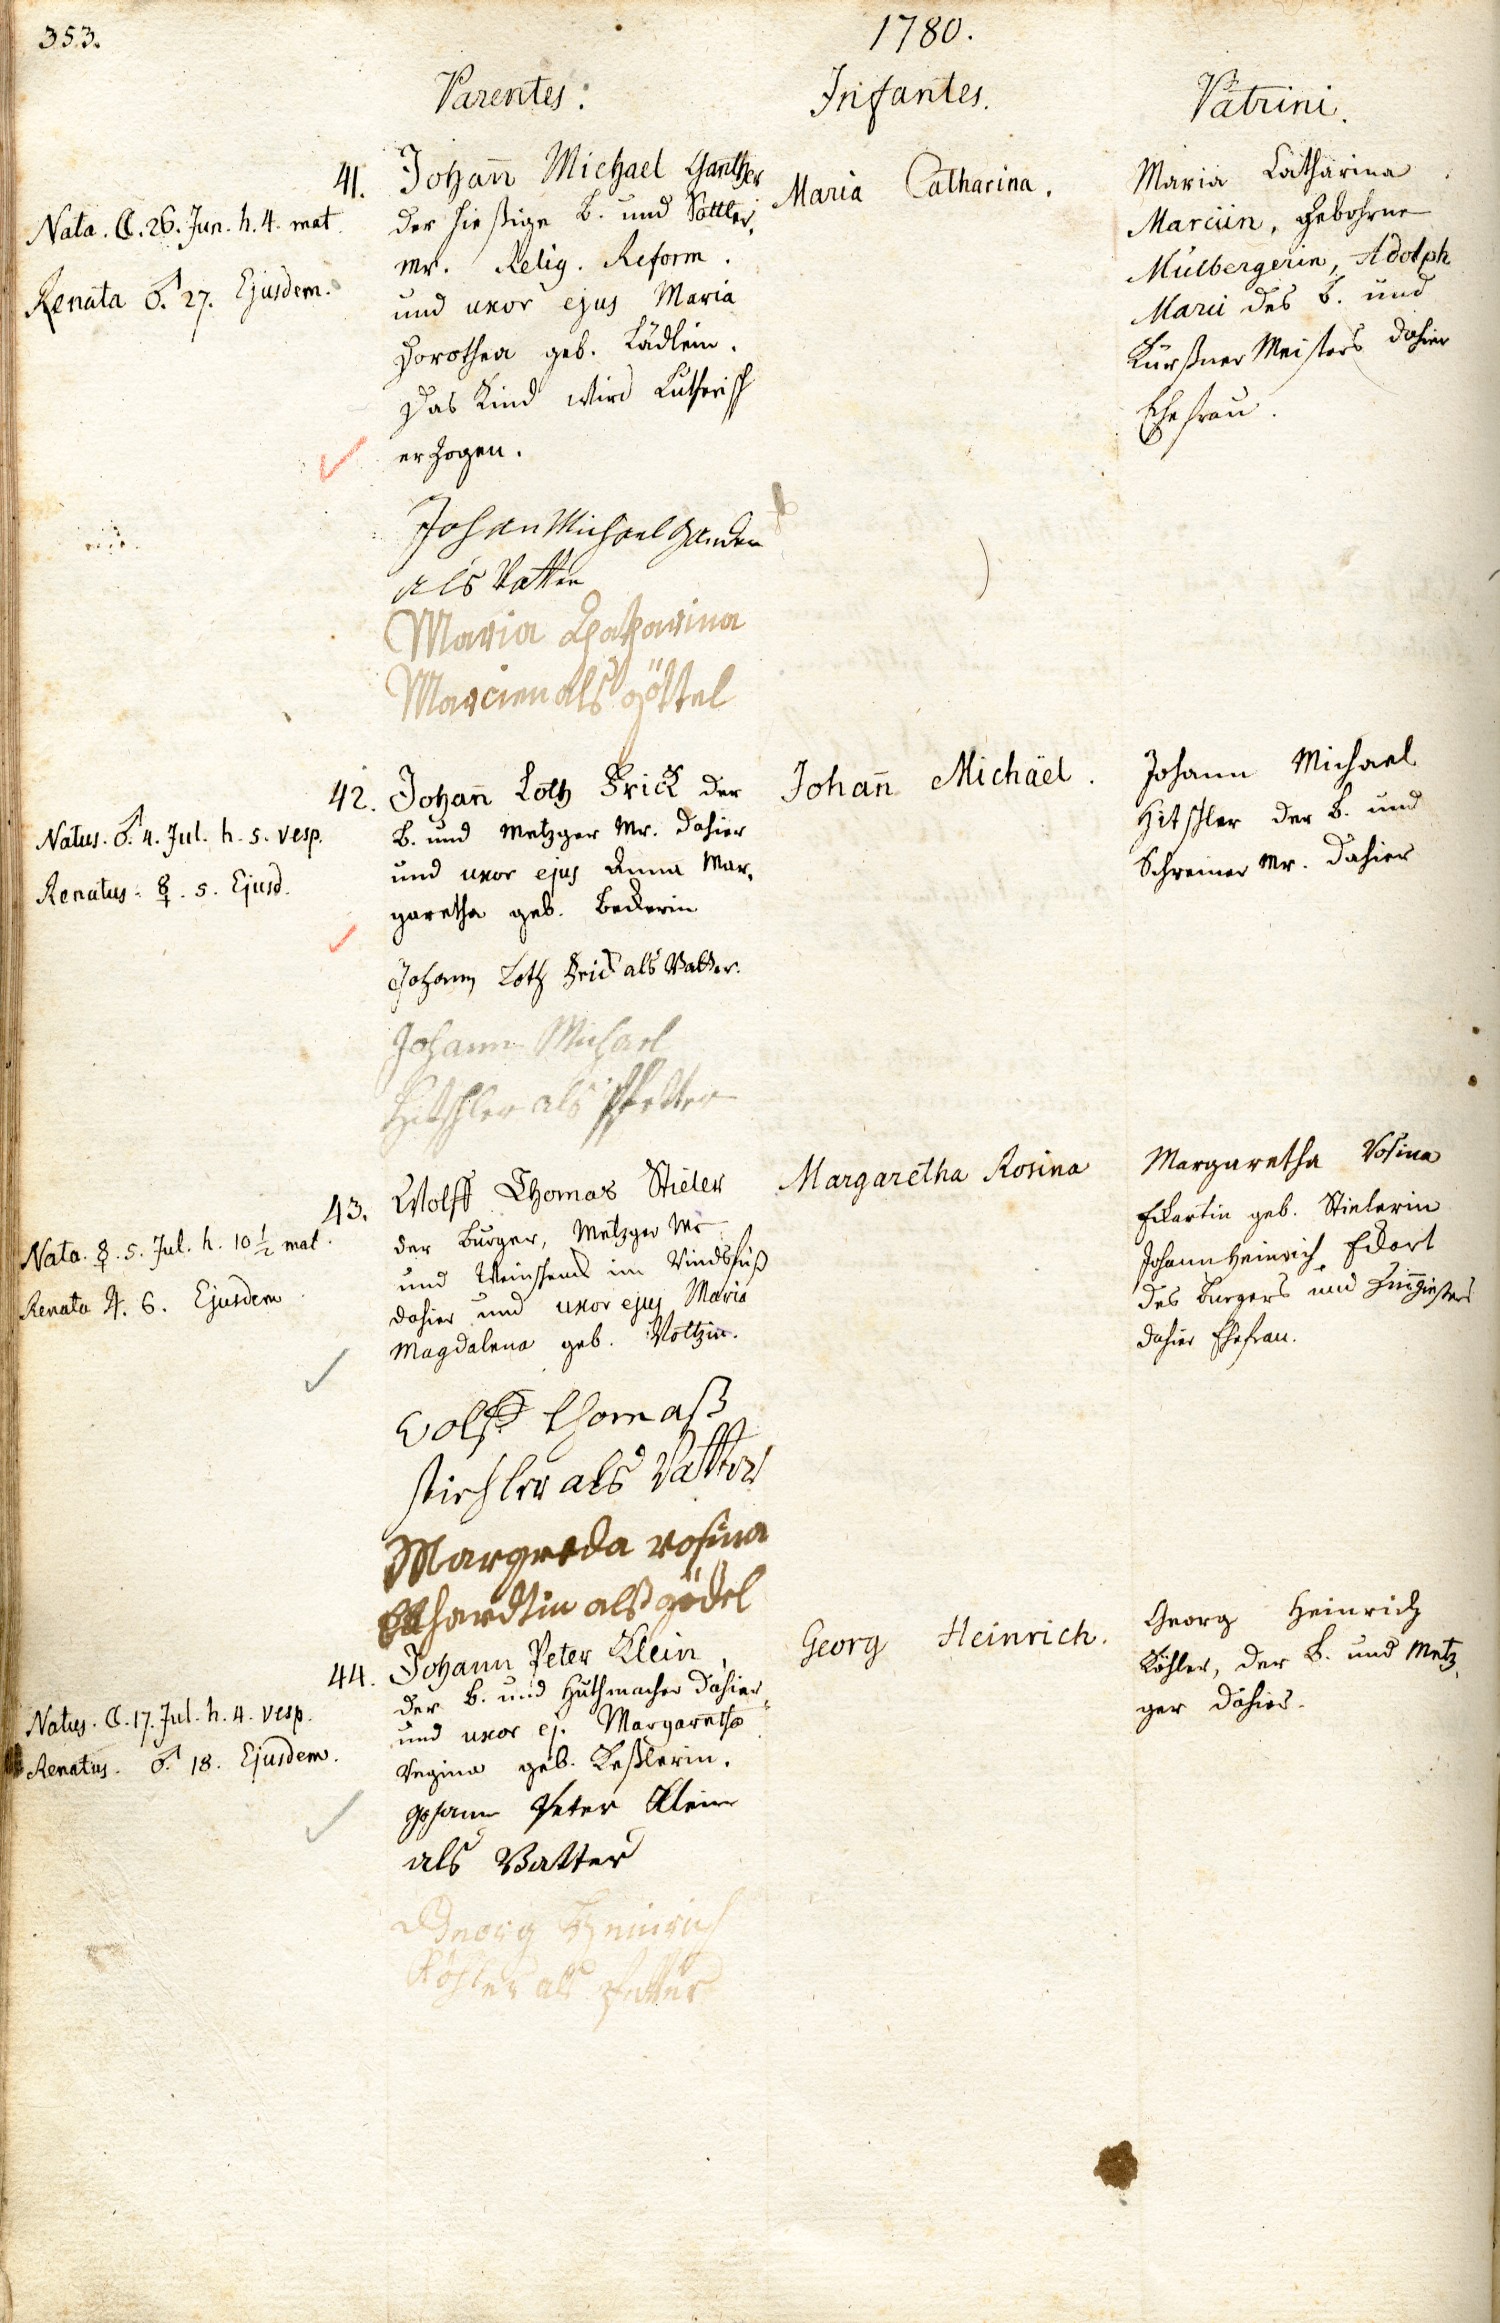 353.
1780.
Parentes:
Infantes.
Patrini.
41.
Johan̄ Michael Ganther
der hiesige B. und Sattler,
Mr. Relig. Reform.
und uxor ejus Maria
Dorothea geb. Lädlein.
Das Kind wird Lutherisch
erzogen.
Nata. ☾. 26. Jun. h. 4. mat.
Renata ♂. 27. Ejusdem.
Maria Catharina.
Maria Catharina
Marciin, gebohrne
Mülbergerin, Adolph
Marci des B. und
Kürßner Meisters dahier
Ehefrau.
Johan Michael
als Vatter
Maria Chatharina
Marcien als göttel
42.
Johan̄ Loth Frick der
B. und Metzger Mr. dahier
und uxor ejus Anna Mar,
garetha geb. Beckerin
Natus. ♂. 4. Jul. h. 5. vesp.
Renatus. ☿. 5. Ejusd.
Johan̄ Michäel.
Johann Michael
Hitschler der B. und
Schreiner Mr. dahier
Johann Loth Frick als Vatter.
Johann Michael
Hitschler als Pfetter
43.
Wolff Thomas Stieler
der Burger, Metzger Mr
und Weinschenck im Rindsfuß
dahier und uxor ejus Maria
Magdalena geb. Voltzin.
Nata. ☿. 5. Jul. h. 10 ½ mat.
Renata ♃. 6. Ejusdem
Margaretha Rosina
Margaretha Rosina
Eckartin geb. Stielerin
Johann Heinrich Eckart
des Burgers und Zin̄giesers
dahier Ehefrau.
Wolff thomaß
stiehler als Vatter
Margreda rosina
Ekhardtin alß gödel
44.
Johann Peter Klein,
der B. und Huthmacher dahier,
und uxor ej. Margaretha
Regina geb. Keßlerin.
Natus. ☾. 17. Jul. h. 4. vesp.
Renatus. ♂ 18. Ejusdem.
Georg Heinrich.
Georg Heinrich
Köhler, der B. und Metz,
ger dahier.
Johann Peter Klein
als Vatter
Georg Heinrich
Köhler als Petter